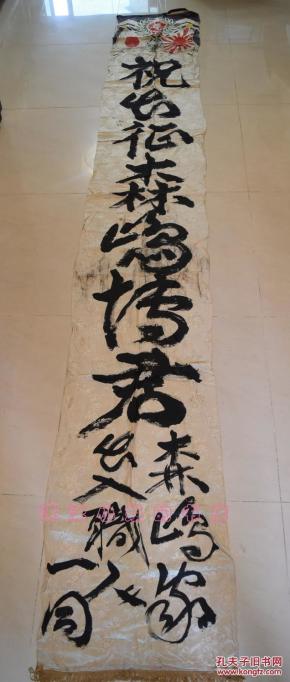 祝出征森嶋博君
森嶋家
出入職人一同
孔夫子旧书网